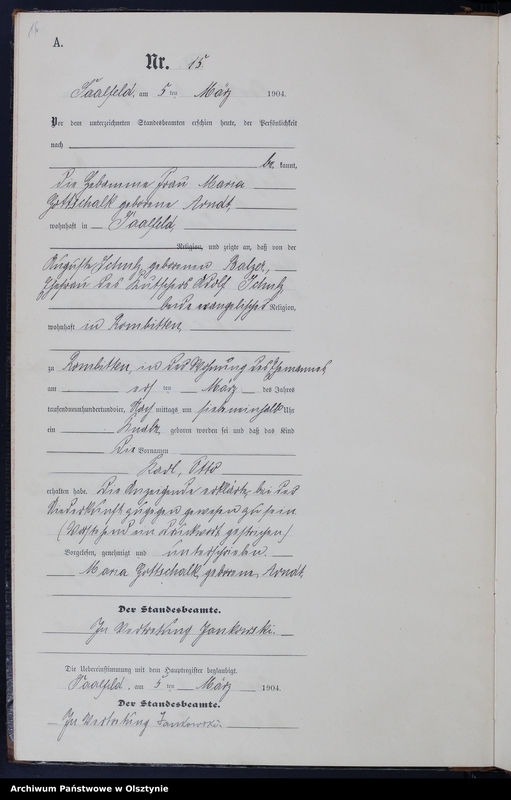 A.
Nr. 15
Saalfeld, am 5 ten März 1904.
Vor dem unterzeichneten Standesbeamten erschien heute, der Persönlichkeit
nach
be kannt,
die Hebamme Frau Maria
Gottschalk geborene Arndt,
wohnhaft in Saalfeld,
Religion, und zeigte an, daß von der
Auguste Schulz geborenen Balzer,
Ehefrau des Kutschers Adolf Schulz
beide evangelischer Religion,
wohnhaft in Kombitten,
zu Kombitten, in der Wohnung des Ehemannes
am ten März des Jahres
tausendneunhundertundvier, Nach mittags um siebeneinhalb Uhr
ein Knabe geboren worden sei und daß das Kind
die Vornamen
Karl, Otto
erhalten habe. Die Anzeigende erklärte, bei der
Niederkunft zugegen gewesen zu sein.
(Vorstehend ein Druckwort gestrichen)
Vorgelesen, genehmigt und unterschrieben
Maria Gottschalk, geborene Arndt.
Der Standesbeamte.
In Vertretung Jankowski.
Die Uebereinstimmung mit dem Hauptregister beglaubigt.
Saalfeld, am 5 ten März 1904.
Der Standesbeamte.
In Vertretung Jankowski.
Archiwum Państwowe w Olsztynie